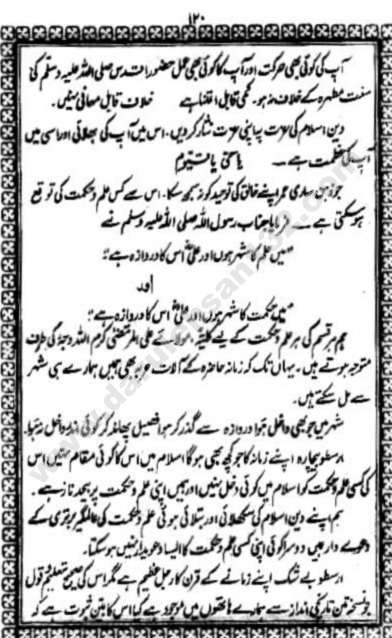 ۱۲۰
آپ کی کوئی بھی حرکت اور آپ کا کوئی بھی عمل حضور اقدس صلی اللہ علیہ وسلم کی
سنت مطہرہ کے خلاف نہ ہو۔ کمی قابل اقتضا ہے خلاف قابل معافی نہیں۔
دین اسلام کی عزت پہ اپنی عزت نثار کر دیں۔ اس میں آپ کی بھلائی اور اسی میں
آپ کی عظمت ہے ۔ یا حی یا قیوم
جو ذہن ساری عمر اپنے خالق کی توحید کو نہ سمجھ سکا۔ اس سے کس علم و حکمت کی توقع
ہو سکتی ہے ۔ فرمایا جناب رسول اللہ صلی اللہ علیہ وسلم نے
"میں علم کا شہر ہوں اور علیؓ اس کا دروازہ ہے"
اور
"میں حکمت کا شہر ہوں اور علیؓ اس کا دروازہ ہے"
ہم ہر قسم کی ہر علم و حکمت کے لیے مولائے علی المرتضیٰ کرم اللہ وجہہ کی طرف
متوجہ ہوتے ہیں۔ یہاں تک کہ زمانہ حاضرہ کے آلات حرب بھی ہمیں ہمارے ہی شہر
سے مل سکتے ہیں۔
شہر میں جو بھی داخل ہوا دروازہ سے گذر کر ہوا فصیل پھلانگ کر کوئی اندر داخل نہ ہوا۔
ارسطو بیچارہ اپنے زمانہ کا جو کچھ بھی ہوگا اسلام میں اس کا کوئی مقام نہیں اس
کی کسی علم و حکمت کو اسلام میں کوئی دخل نہیں اور ہمیں اپنی علم و حکمت پر بیحد ناز ہے۔
ہم اپنے دین اسلام کی سکھلائی اور بتلائی ہوئی علم و حکمت کی عالمگیر برتری کے
دعوے دار ہیں دوسرا کوئی اپنی کسی علم و حکمت کا ایسا دعویدار نہیں ہو سکتا۔
ارسطو بے شک اپنے زمانے کے قرن کا رجل عظیم ہے مگر اس کی صحیح تعلیم منقول
جو مستند تاریخی انداز سے ہمارے ہاتھوں میں موجود ہے کیا اس کا بین ثبوت ہے کہ
www.darulehsan.com